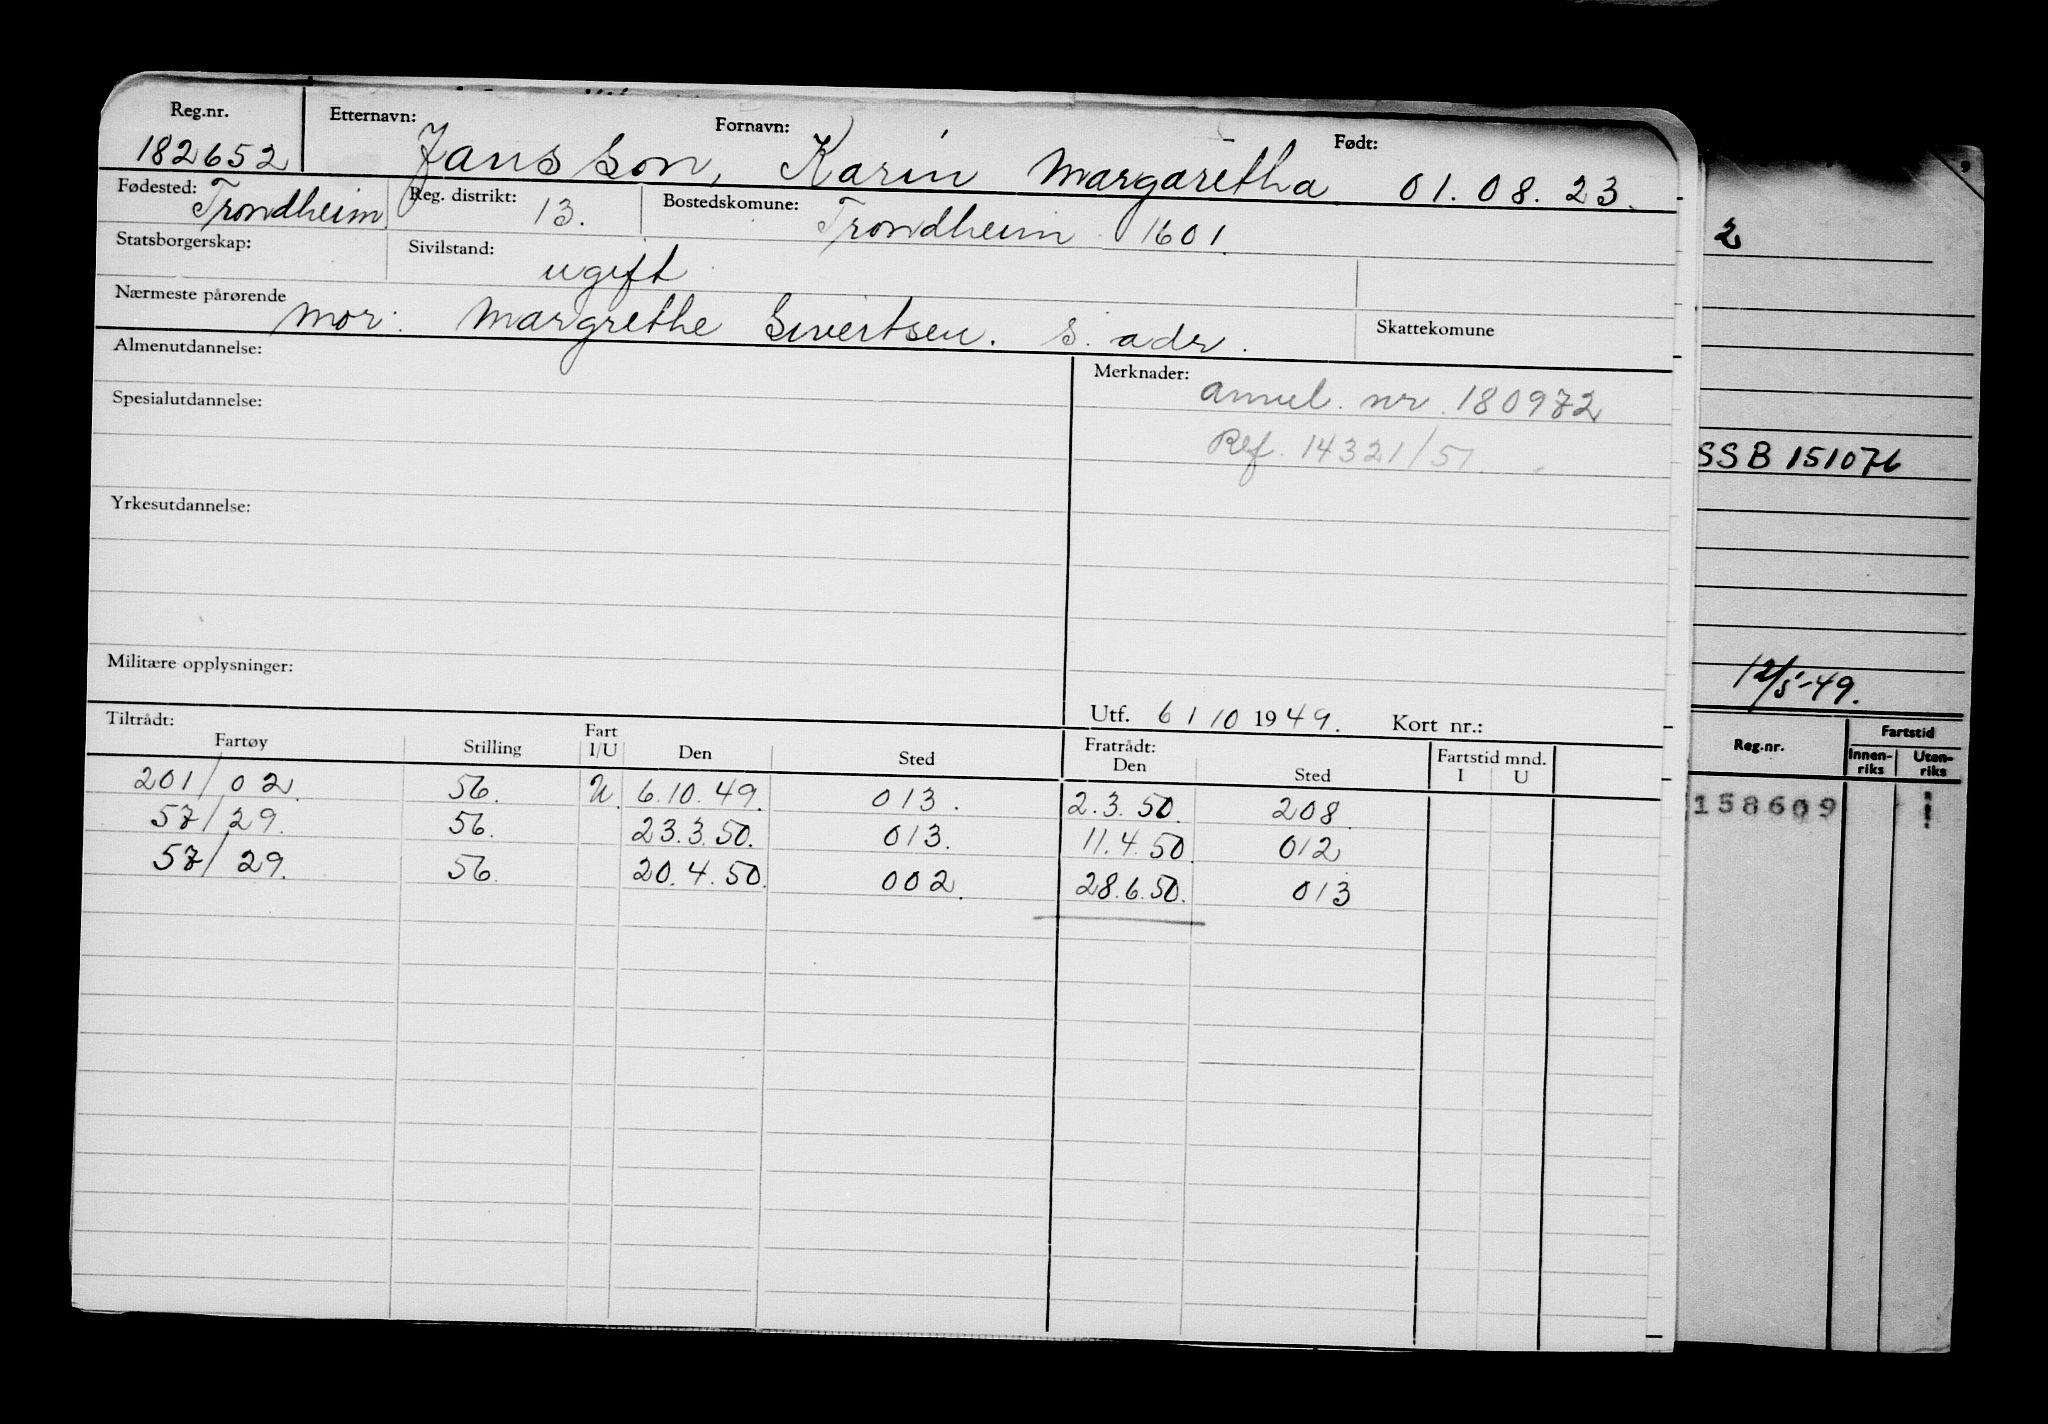 Reg.nr. Etternavn: Fornavn: Født:
182652 Jansson, Karin Margaretha 01.08.23.
Fødested: Trondheim Reg. distrikt: 13. Bostedskomune: Trondheim 1601.
Statsborgerskap: Sivilstand: ugift
Nærmeste pårørende mor: Margrethe Sivertsen. s. adr. Skattekomune
Almenutdannelse: Merknader: annul. nr. 180972
Spesialutdannelse: Ref. 14321/51.
Yrkesutdannelse:
Militære opplysninger:
Utf. 6 / 10 1949. Kort nr.:
Tiltrådt: Fartøy Stilling Fart I/U Den Sted Fratrådt: Den Sted Fartstid mnd. I U
201/02. 56. U. 6.10.49. 013. 2.3.50. 208.
57/29. 56. 23.3.50. 013. 11.4.50. 012
57/29. 56. 20.4.50. 002. 28.6.50. 013
2
SSB 151076
12/5-49.
Reg.nr. Fartstid
Innen-riks Uten-riks
158609